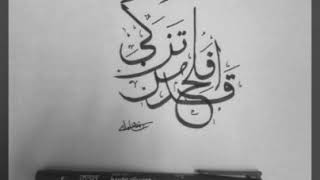 قد أفلح من تزكى